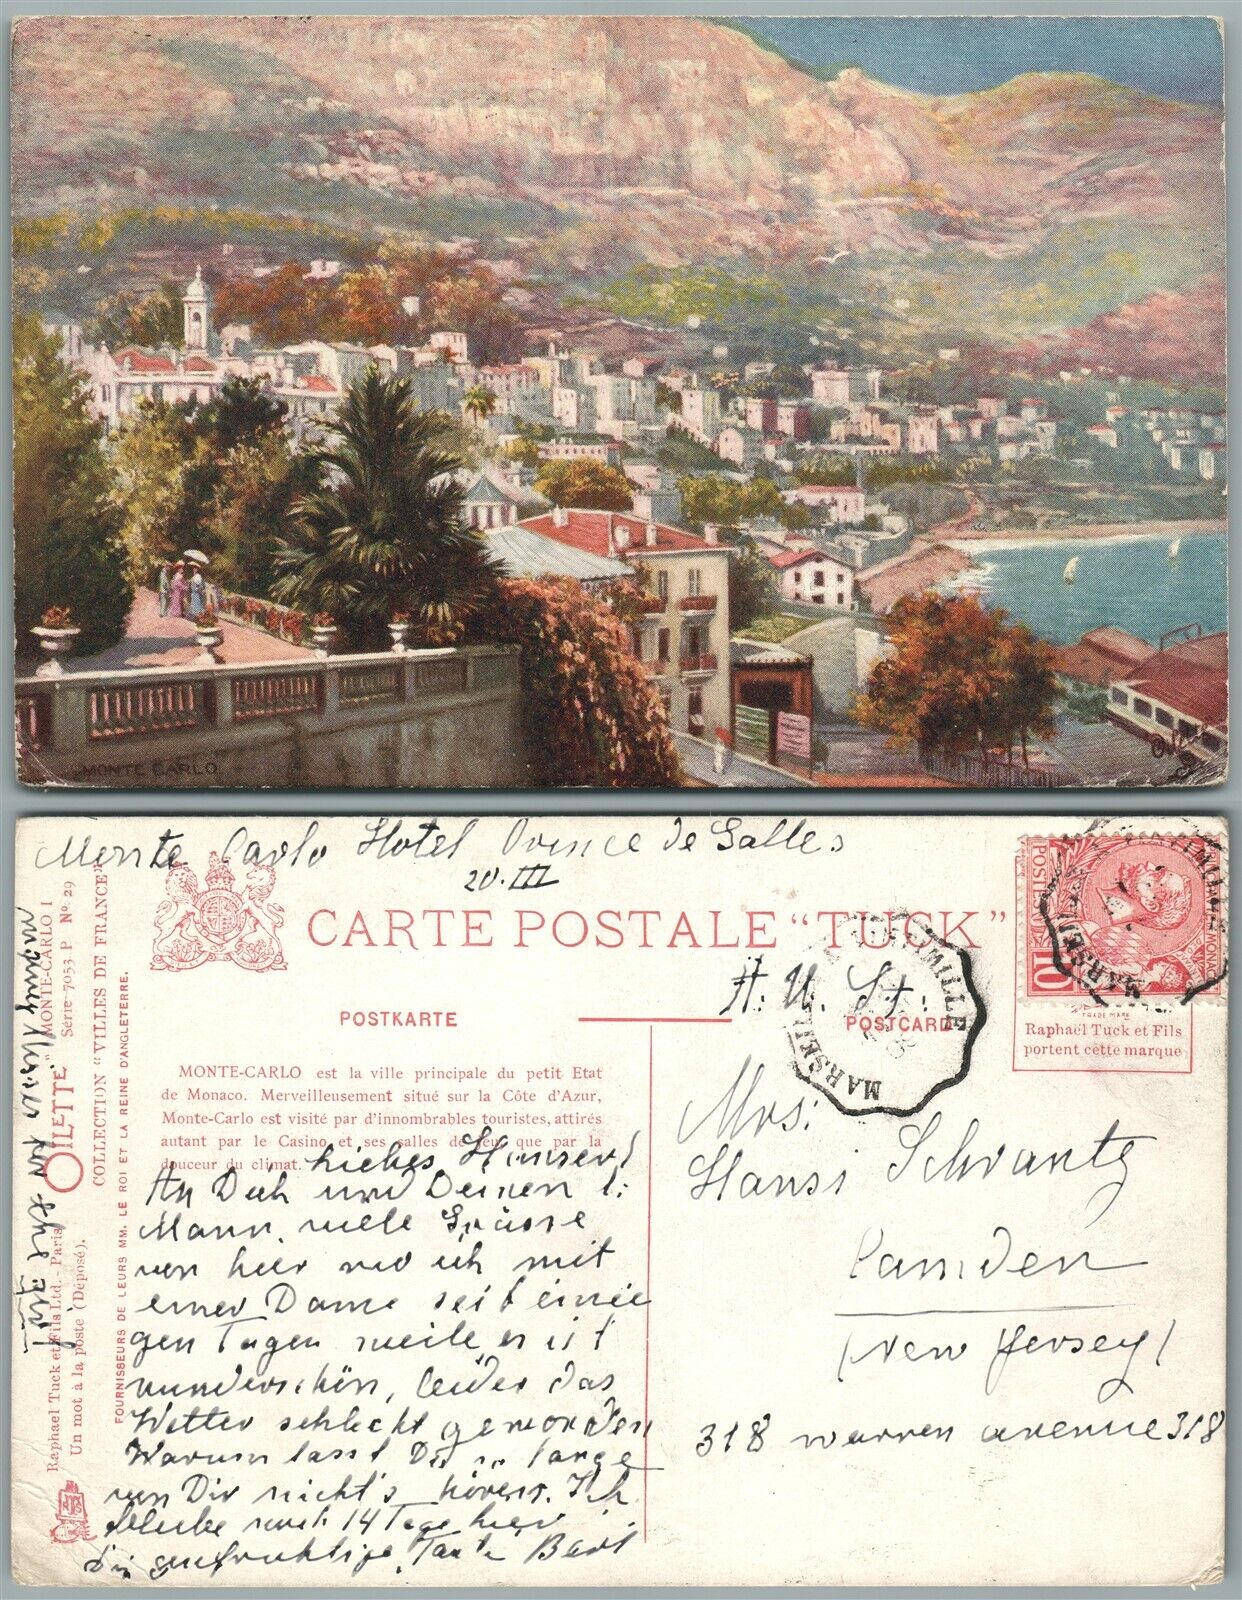 MONTE CARLO
Monte Carlo Hotel Prince de Galles
20.III
CARTE POSTALE “TUCK”
POSTKARTE
POSTCARD
MONTE-CARLO est la ville principale du petit Etat
de Monaco. Merveilleusement situé sur la Côte d'Azur,
Monte-Carlo est visité par d'innombrables touristes, attirés
autant par le Casino et ses salles de jeu que par la
douceur du climat.
liebes Hanserl
An Dich und Deinen l:
Mann viele Grüsse
von hier wo ich mit
einer Dame seit einie
gen Tagen weile, es ist
wunderschön, leider das
Wetter schlecht geworden
Warum lasst Du so lange
von Dir nicht's hören. Ich
bleibe noch 14 Tage hier
Tante
A. U. St.
Mrs:
Hansi Schwantz
Camden
(New Jersey)
318 warren avenue 318
POSTES
10
MONACO
MARSEILLE
TRADE MARK
Raphaël Tuck et Fils
portent cette marque
“OILETTE” “MONTE-CARLO I
Série 7053 P Nº 29
COLLECTION “VILLES DE FRANCE”
FOURNISSEURS DE LEURS MM. LE ROI ET LA REINE D'ANGLETERRE.
Raphael Tuck et Fils Ltd. - Paris
Un mot à la poste (Déposé).